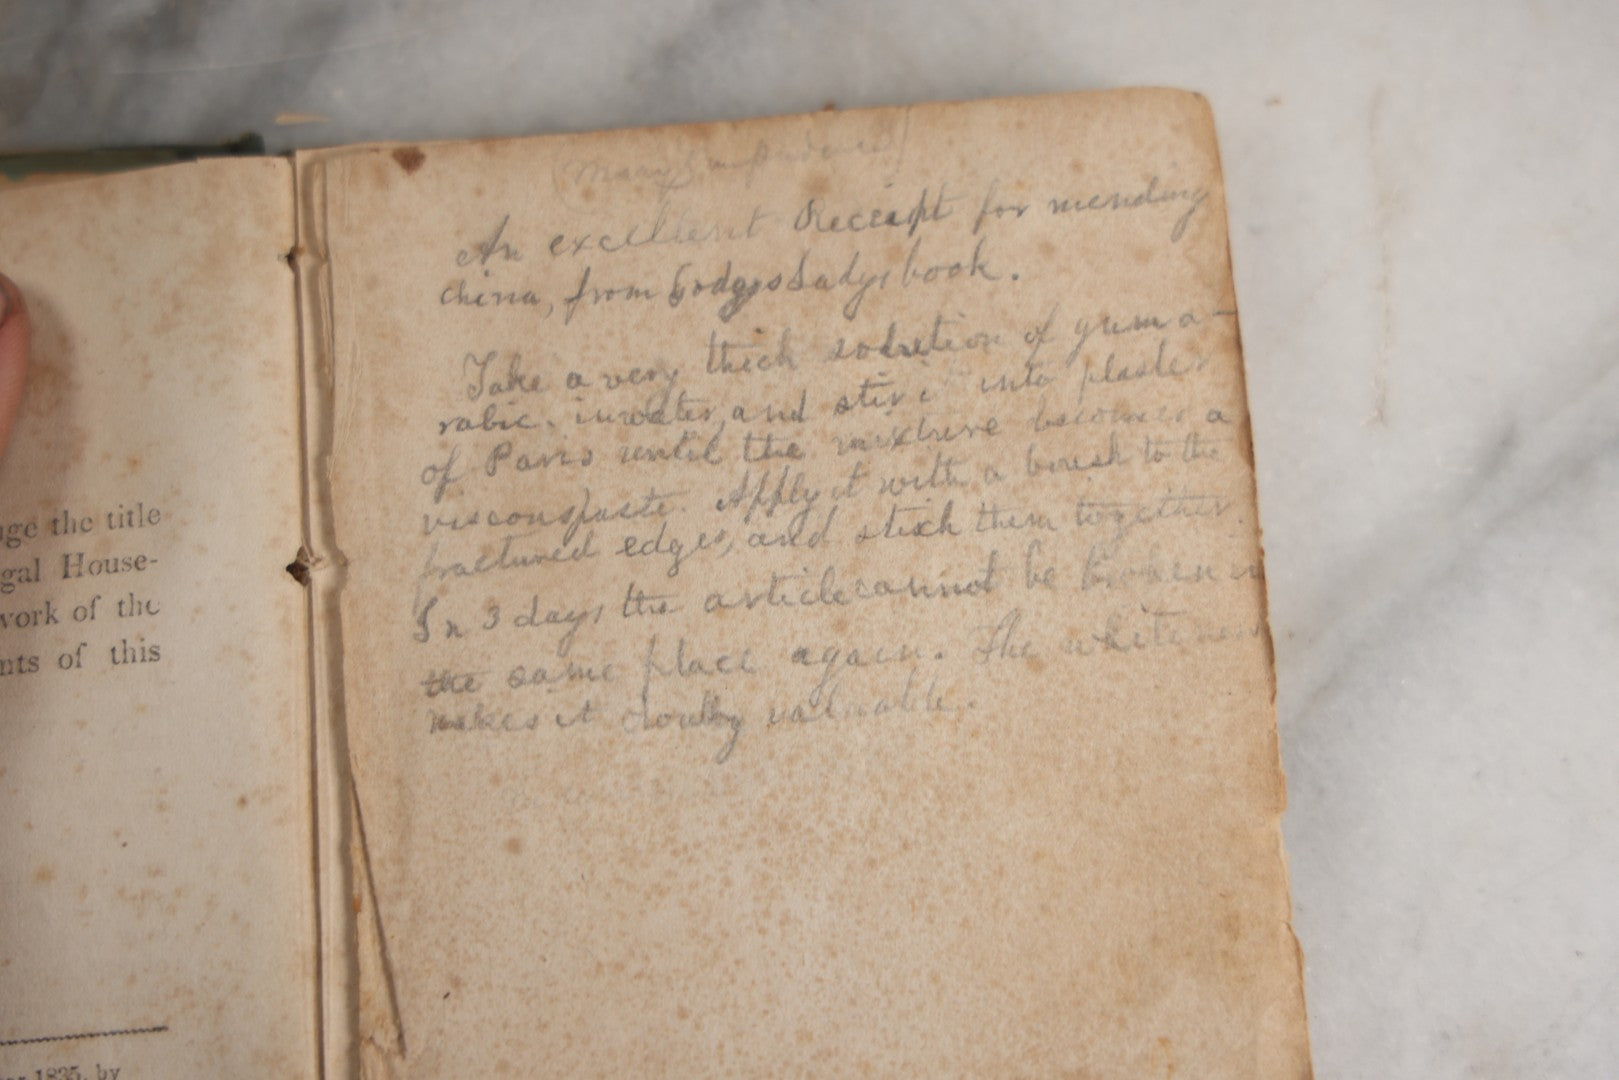 uge the title
gal House-
work of the
nts of this
1835, by
An excellent Receipt for mending
china, from Godeys Ladys book.
Take a very thick solution of gum a-
rabic. in water, and stir it into plaster
of Paris until the mixture becomes a
viscous paste. Apply it with a brush to the
fractured edges, and stick them together.
In 3 days the article cannot be broken in
the same place again. The whiteness
makes it doubly valuable.